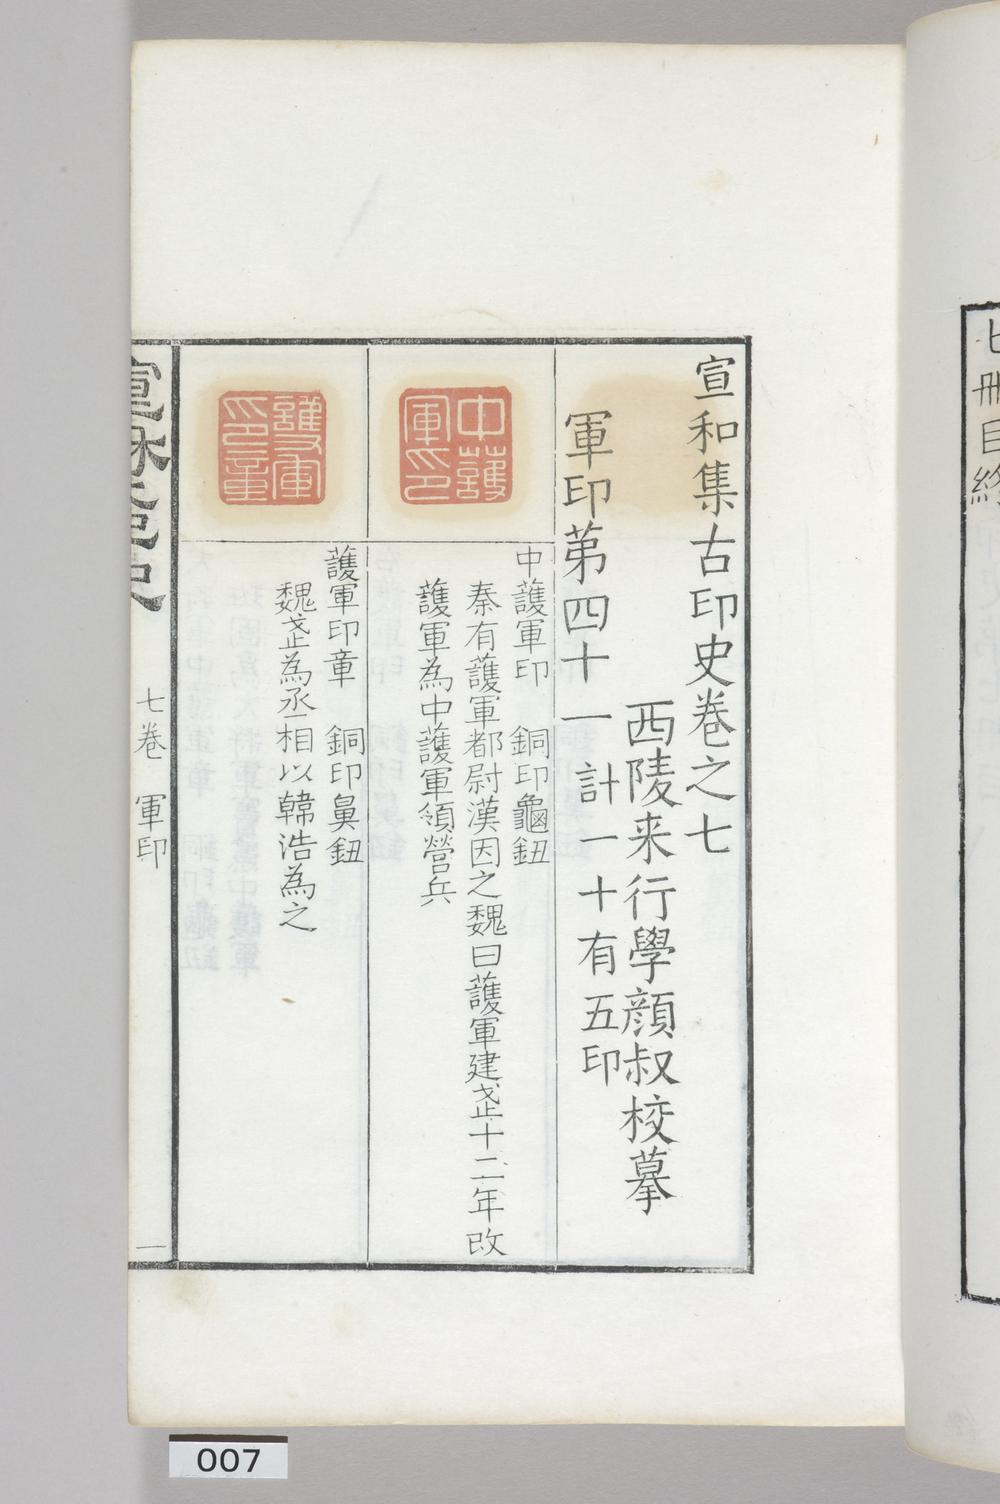 七冊目終
宣和集古印史卷之七
西陵来行學顔叔校摹
軍印第四十一計一十有五印
中護軍印
中䕶軍印 銅印龜鈕
秦有䕶軍都尉漢因之魏曰䕶軍建㱏十二年改
䕶軍為中䕶軍領營兵
護軍印章
䕶軍印章 銅印鼻鈕
魏㱏為丞相以韓浩為之
宣和印史
七卷 軍印
一
007